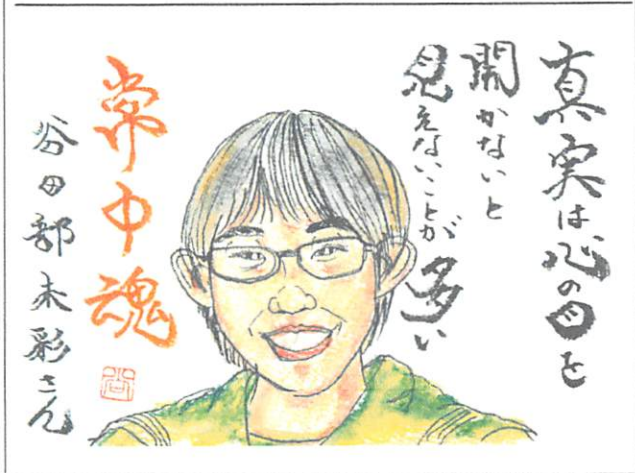 真実は心の目を
開かないと
見えないことが多い
常中魂
谷田部未彩さん